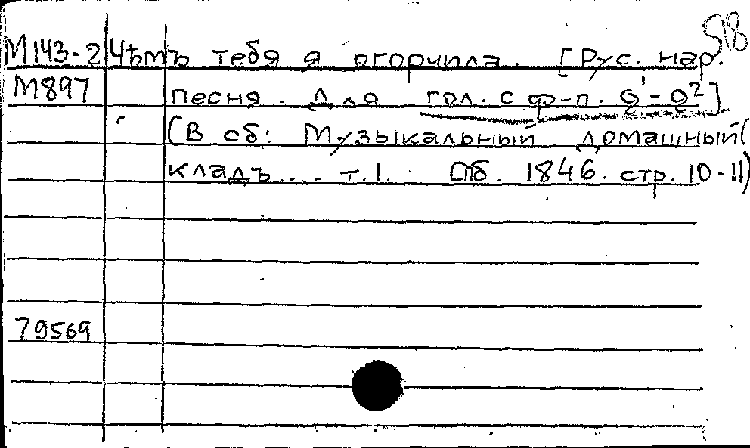 518
М143-2 Чѣмъ тебя я огорчила. [Рус. нар.
М897 песня. Для гол. с ф-п.
(В сб: Музыкальный домашный
кладъ... т.1. Пб. 1846. стр. 10-11)
79569